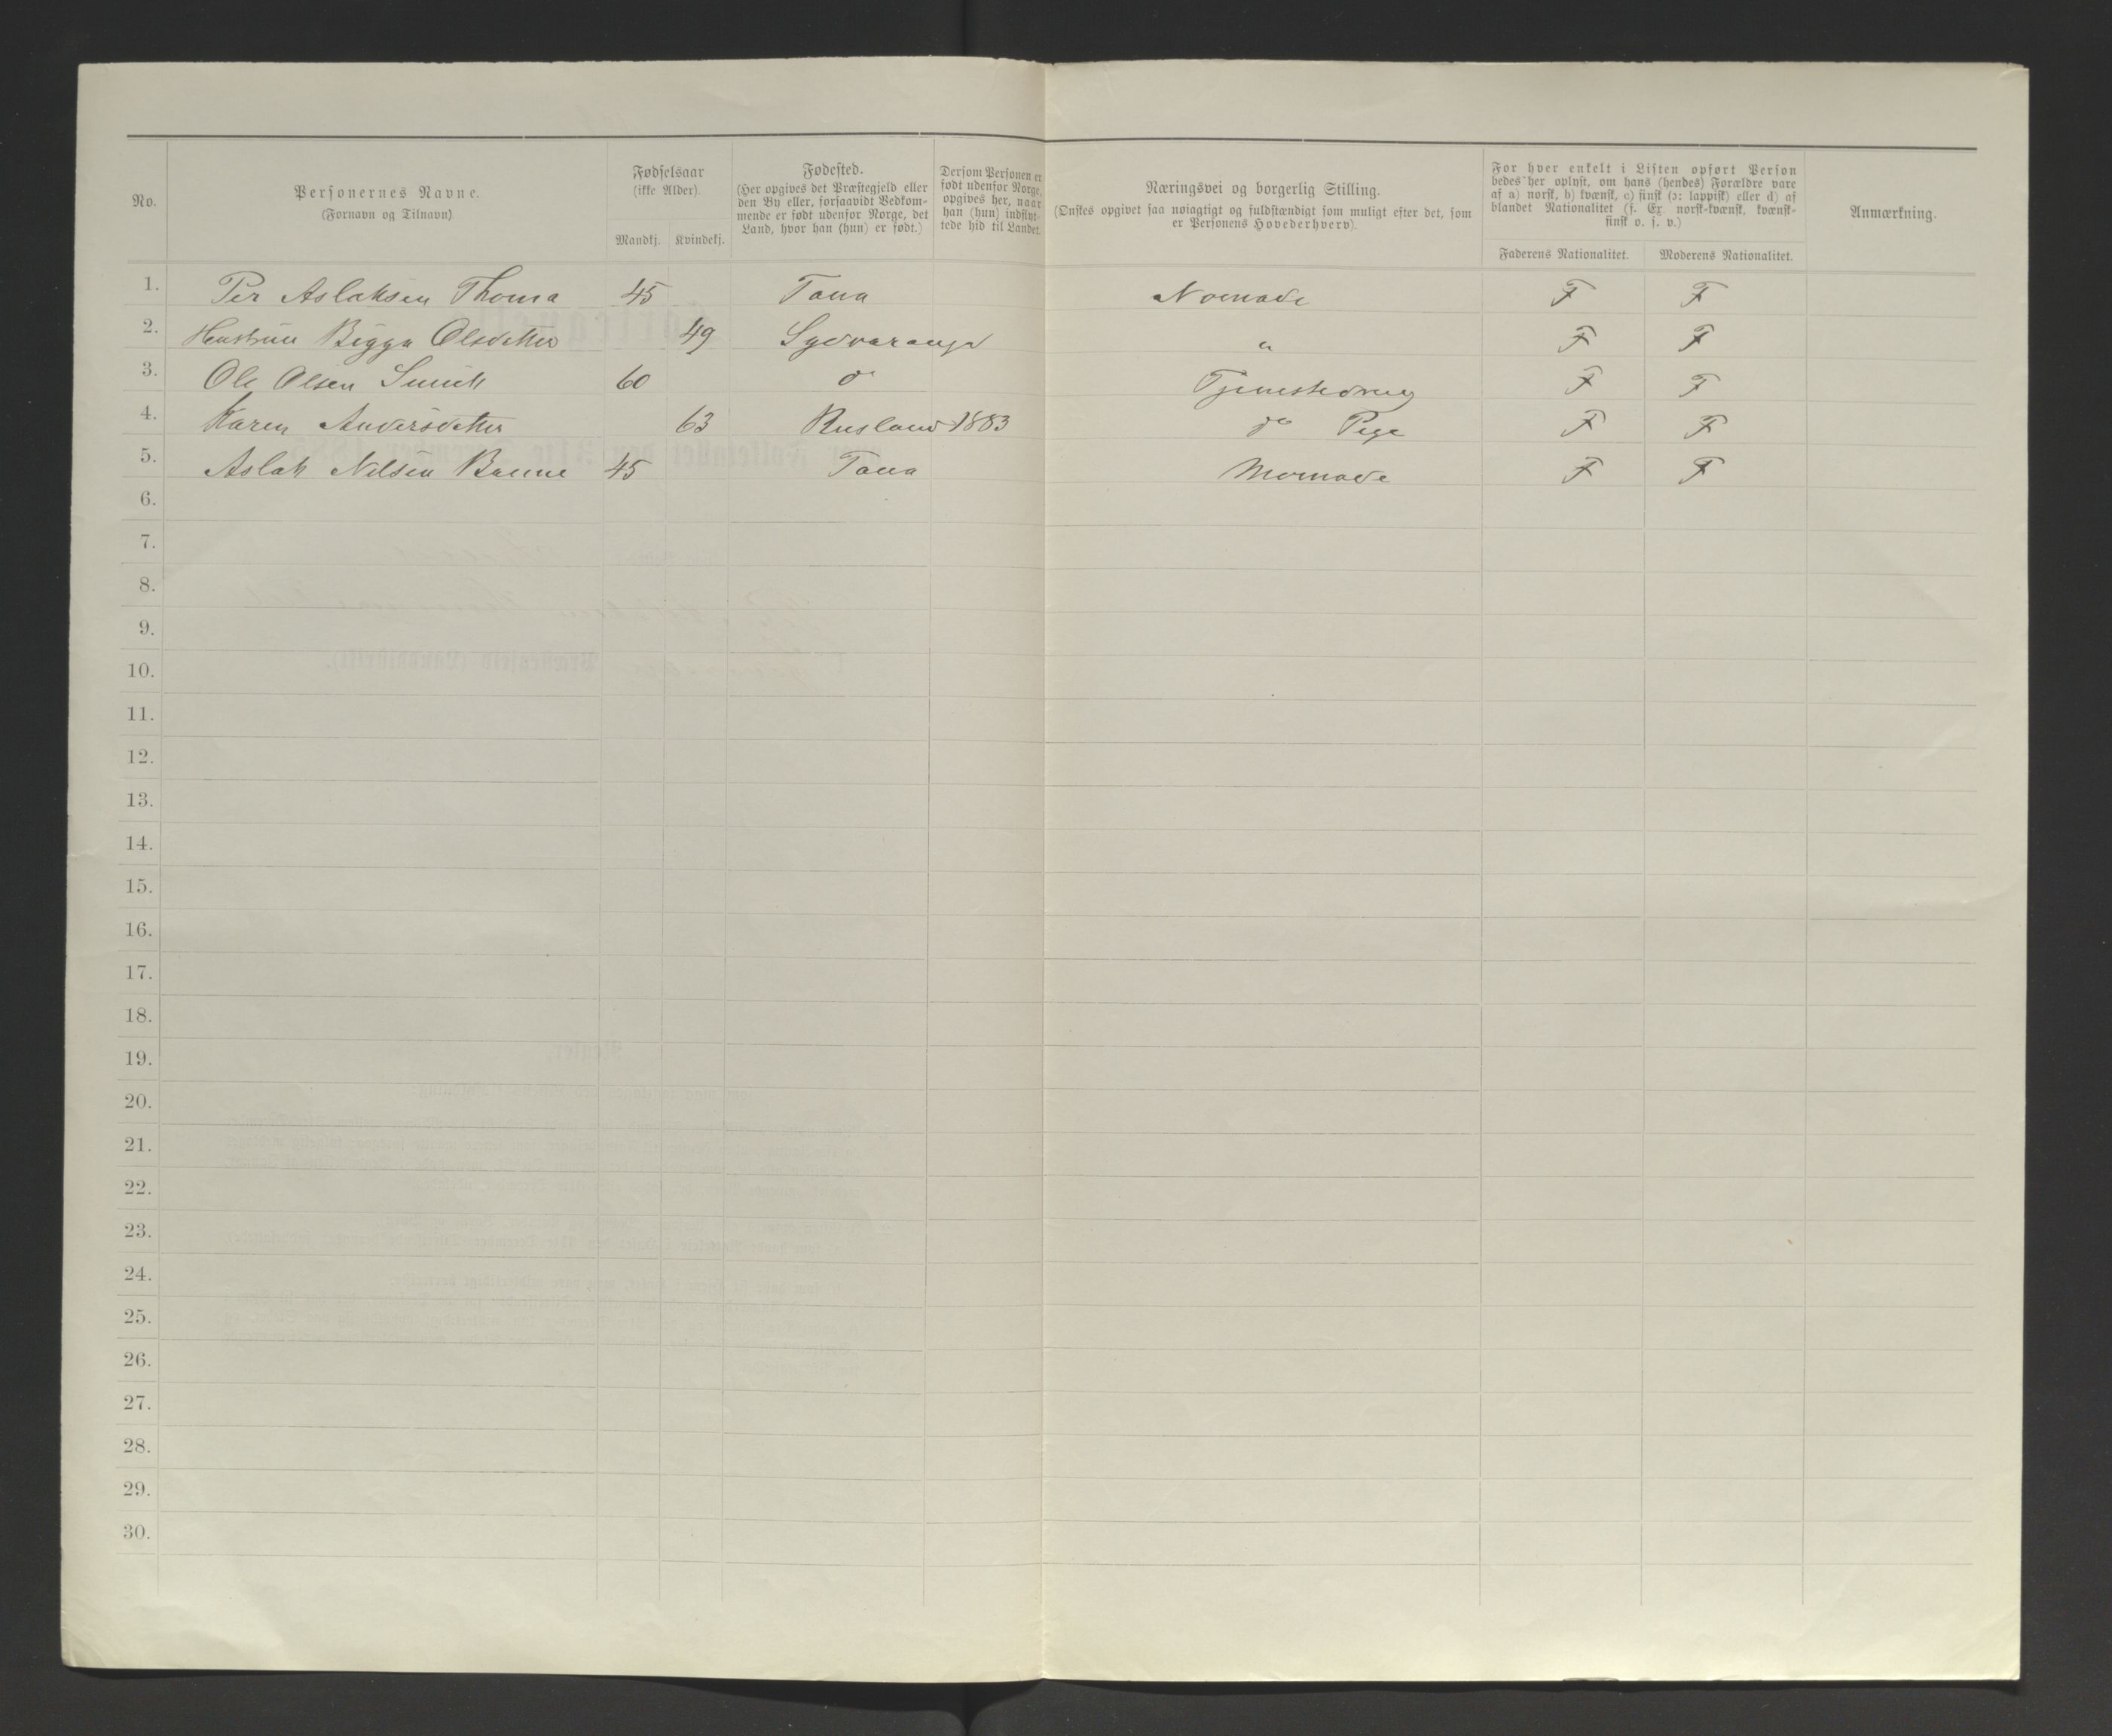 No.
Personernes Navne.
(Fornavn og Tilnavn).
Fødselsaar
(ikke Alder).
Mandkj. Kvindekj.
Fødested.
(Her opgives det Præstegjeld eller
den By eller, forsaavidt Vedkom-
mende er født udenfor Norge, det
Land, hvor han (hun) er født.)
Dersom Personen er
født udenfor Norge,
opgives her, naar
han (hun) indflyt-
tede hid til Landet.
Næringsvei og borgerlig Stilling.
(Ønskes opgivet saa nøiagtigt og fuldstændigt som muligt efter det, som
er Personens Hovederhverv).
For hver enkelt i Listen opført Person
bedes her oplyst, om hans (hendes) Forældre vare
af a) norsk, b) kvænsk, c) finsk (ɔ: lappisk) eller d) af
blandet Nationalitet (f. Ex. norsk-kvænsk, kvænsk-
finsk o. s. v.)
Faderens Nationalitet. Moderens Nationalitet.
Anmærkning.
1. Per Aslaksen Thoma 45 Tana Nomade F F
2. Hustru Bigga Olsdatter 49 Sydvaranger " F F
3. Ole Olsen 60 do F F
4. Karen Andersdatter 63 Rusland 1883 do Pige F F
5. Aslak Nilsen 45 Tana Nomade F F
6.
7.
8.
9.
10.
11.
12.
13.
14.
15.
16.
17.
18.
19.
20.
21.
22.
23.
24.
25.
26.
27.
28.
29.
30.